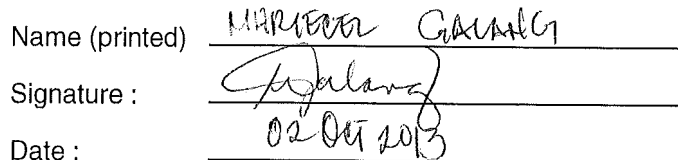 Name (printed) MARIECEL GALANG
Signature : Galang
Date : 02 OCT 2013